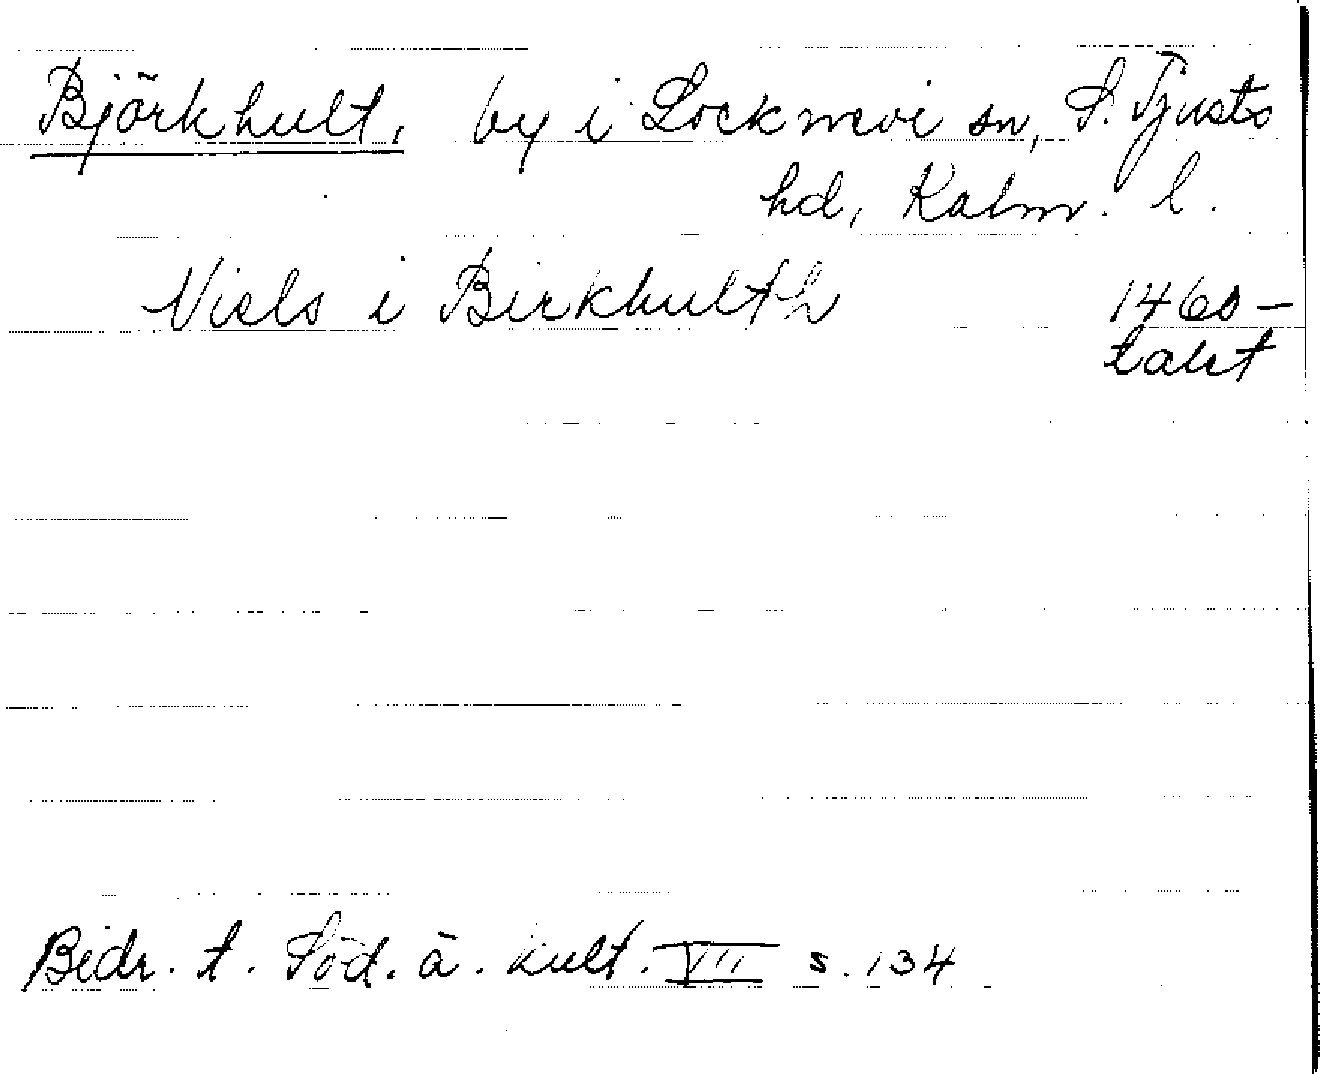 Björkhult, by i Locknevi sn, S. Tjusts
hd, Kalm. l.
Niels i Birkhulth 1460-
talet
Bidr. t. Söd. ä. kult. VII s. 134